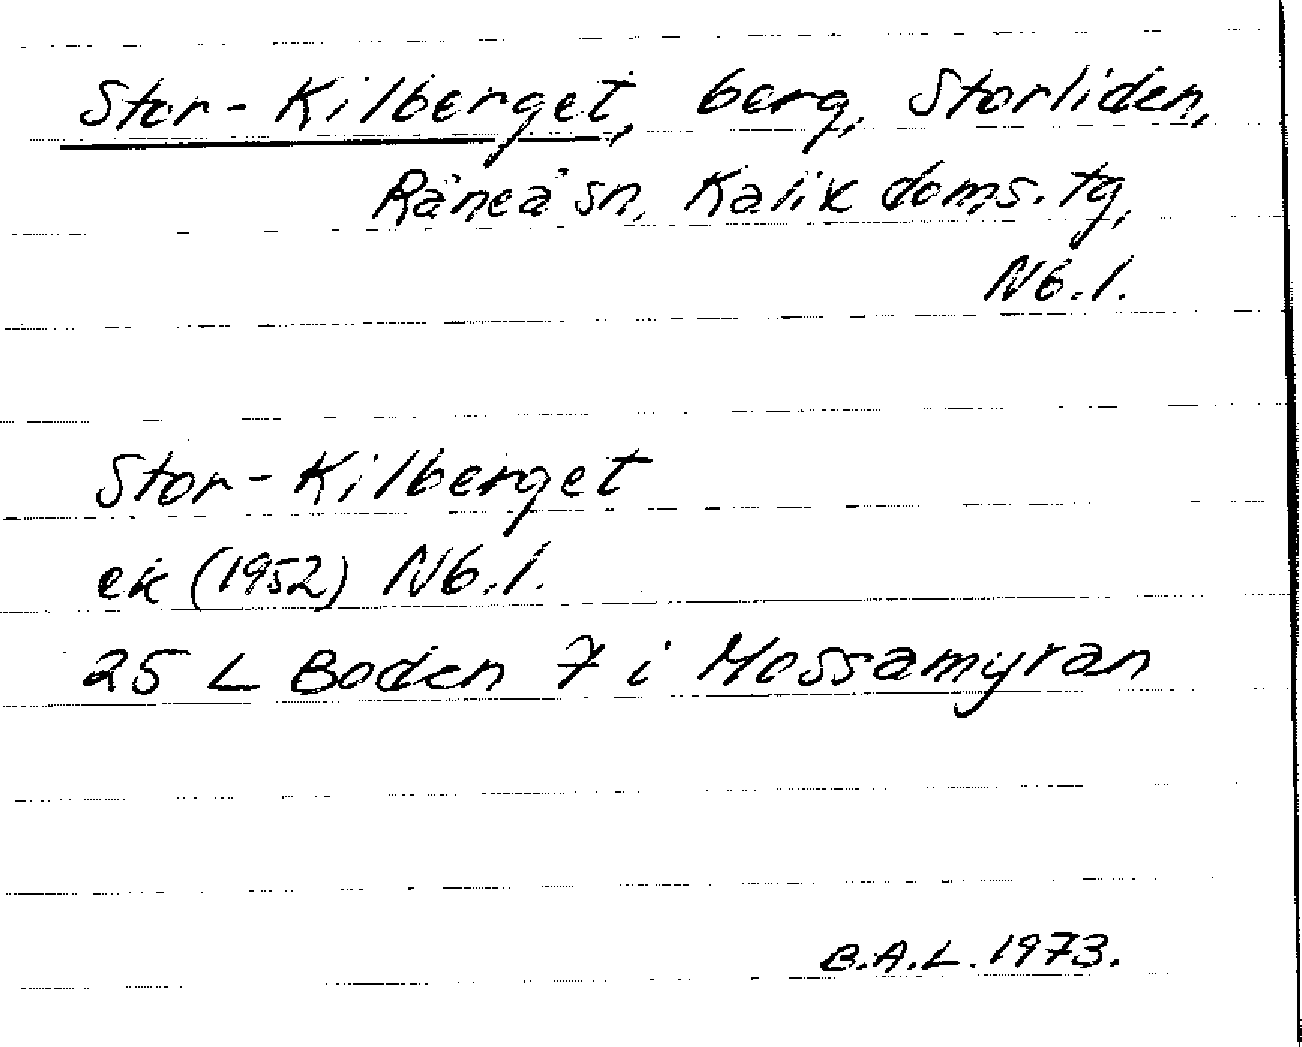 Stor-Kilberget, berg, Storliden,
Råneå sn, Kalix doms. tg,
Nb.l.
Stor-Kilberget
ek (1952) Nb.l.
25 L Boden 7 i Mossamyran
B.A.L. 1973.